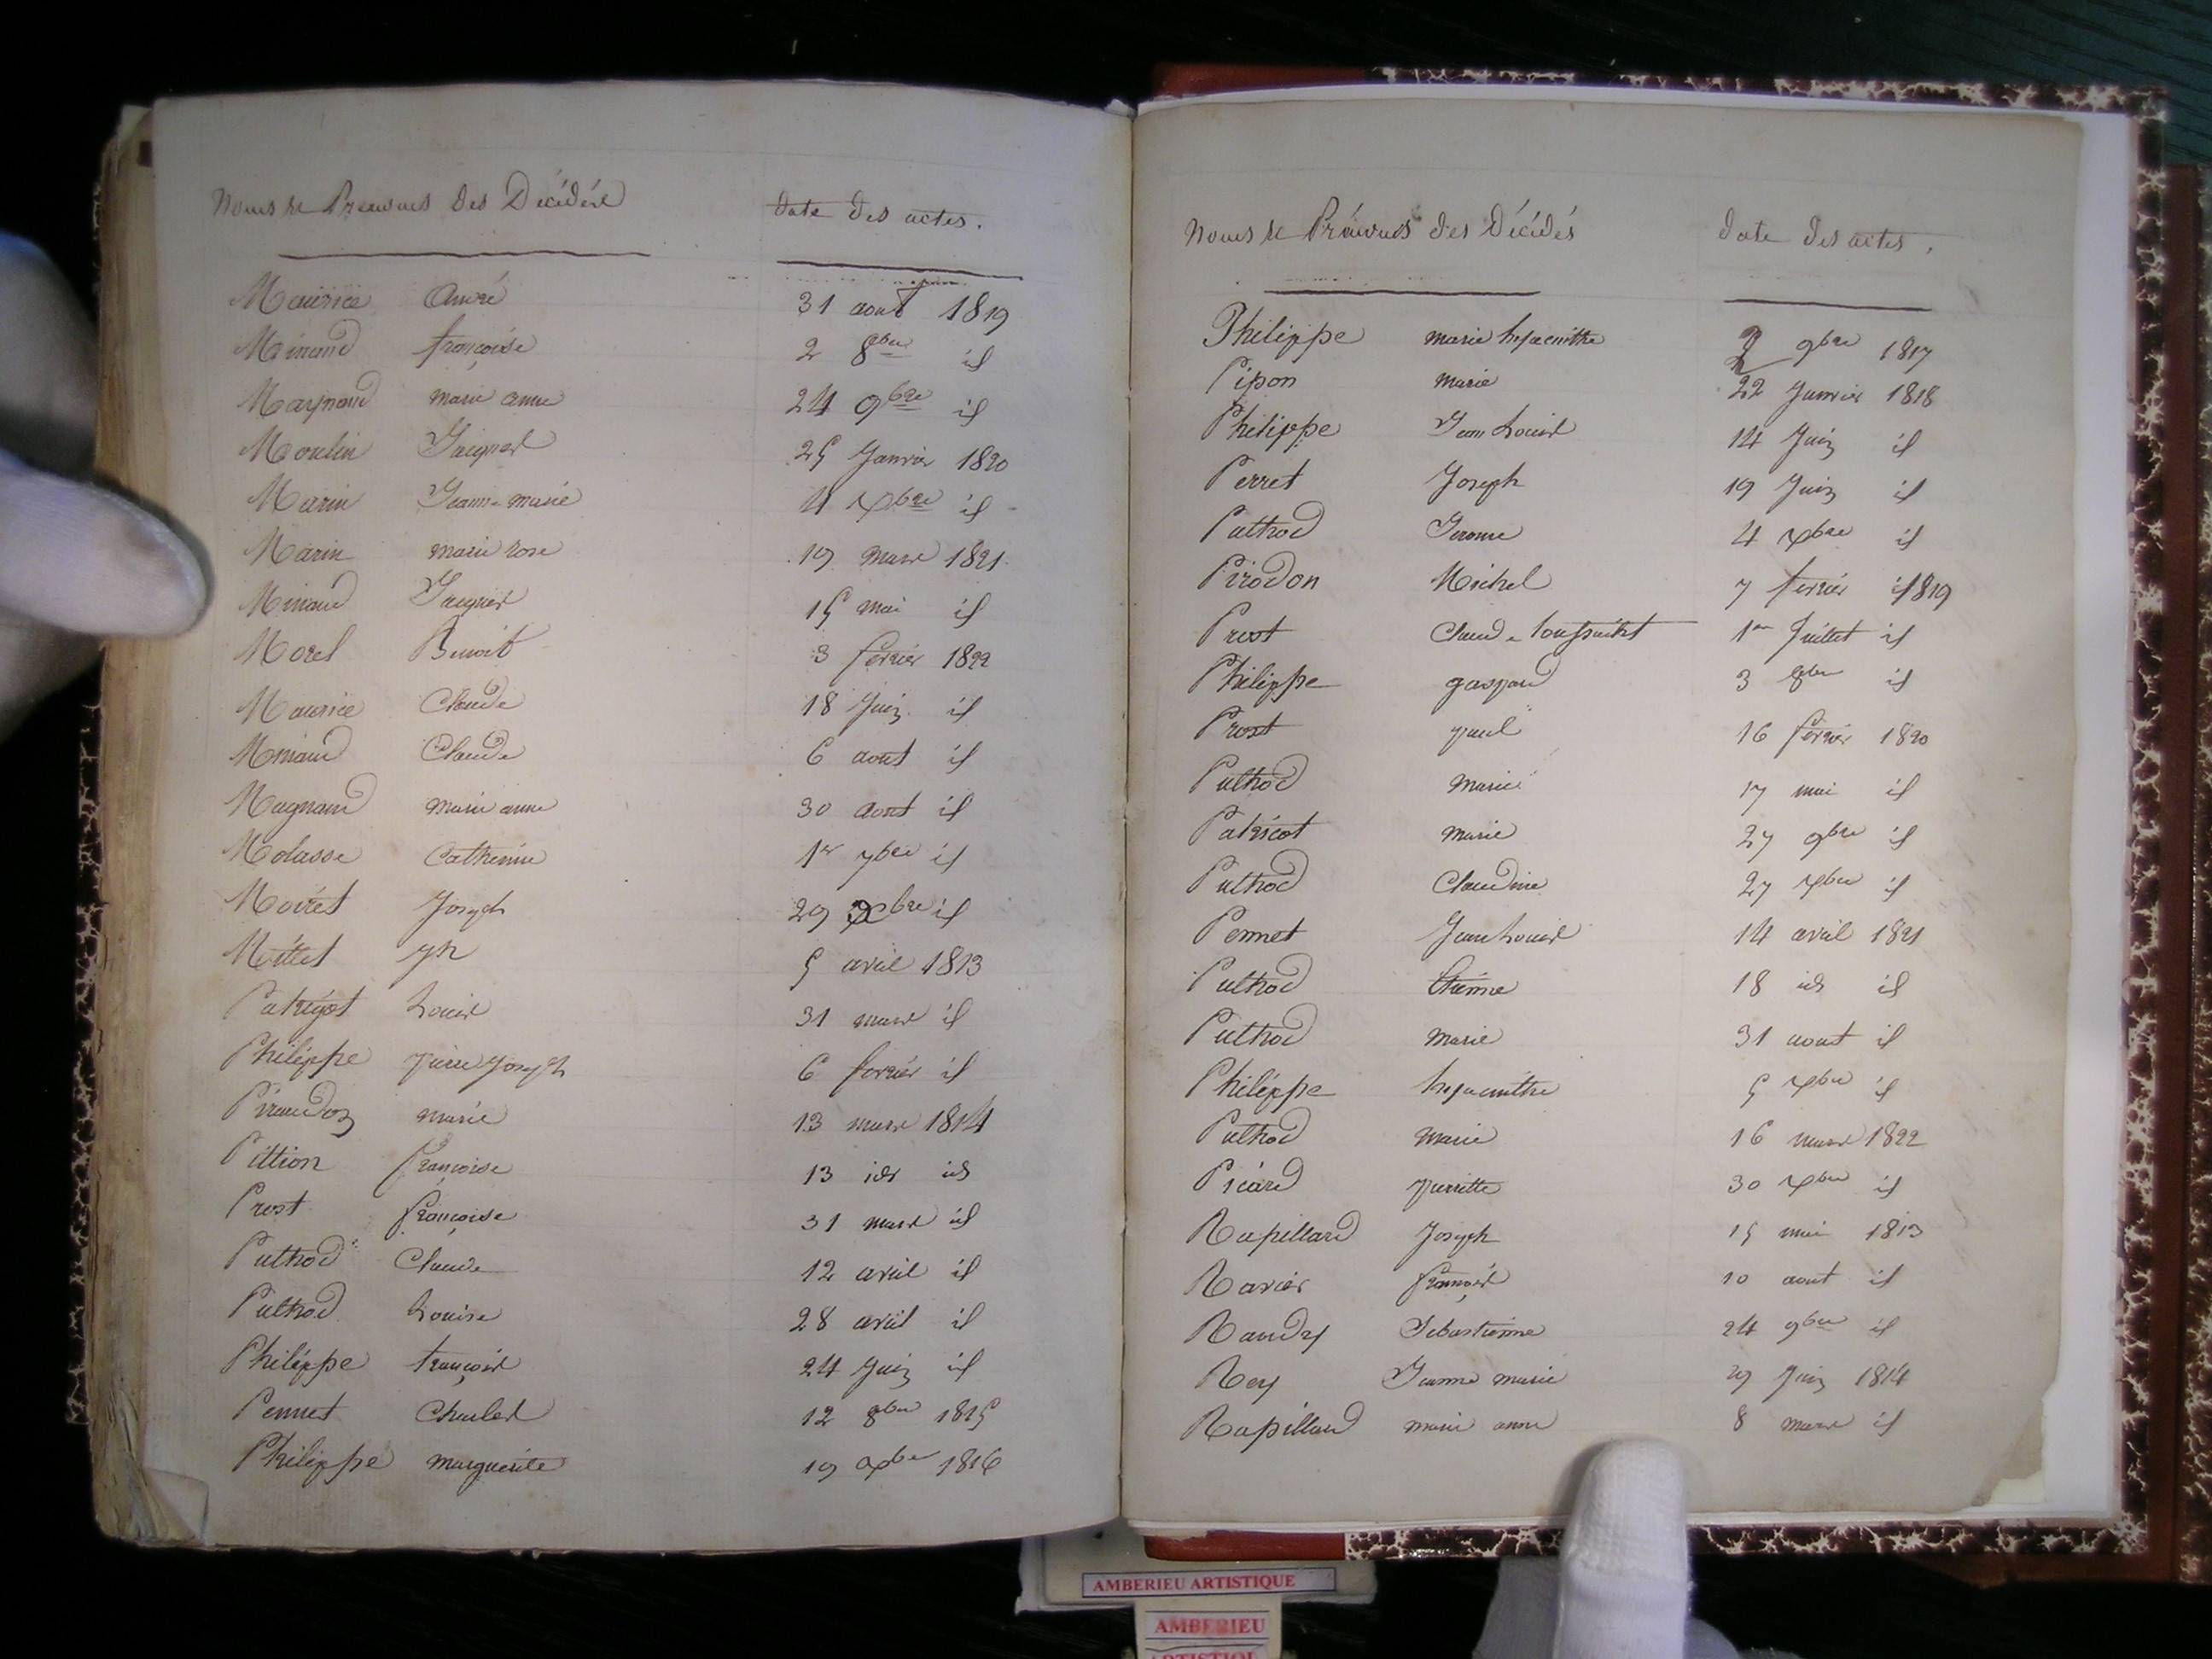 Noms et Prénoms des Décédés date des actes.
Maurice André 31 aout 1819
Minand françoise 2 8bre id
Maynand marie anne 24 9bre id
Moulin Jacques 25 Janvier 1820
Marin Jeanne-marie 4 Xbre id
Marin marie rose 19 mars 1821
Minaud Jacques 15 mai id
Morel Benoit 3 février 1822
Maurice Claude 18 Juin id
Minaud Claude 6 aout id
Magnand marie anne 30 aout id
Molasse Catherine 1er 7bre id
Moiret Joseph 29 Xbre id
Millet jh 5 avril 1813
Patrigot Louis 31 mars id
Philippe pierre Joseph 6 février id
Piraudon marie 13 mars 1814
Pittion françoise 13 ids ids
Prost françoise 31 mars id
Puthod Claude 12 avril id
Puthod Louise 28 avril id
Philippe françois 24 Juin id
Pennet Charles 12 8bre 1815
Philippe marguerite 19 Xbre 1816
Noms et Prénoms des Décédés date des actes.
Philippe marie hyacinthe 2 9bre 1817
Pipon marie 22 Janvier 1818
Philippe Jean Louis 14 Juin id
Perret Joseph 19 Juin id
Puthod Jerome 4 Xbre id
Pirodon Michel 7 fevrier 1819
Prost Claude toussaint 1er Juillet id
Philippe gaspard 3 8bre id
Prost paul 16 février 1820
Puthod Marie 17 mai id
Patricot marie 27 9bre id
Puthod Claudine 27 Xbre id
Pennet Jean Louis 14 avril 1821
Puthod Etienne 18 ids id
Puthod Marie 31 aout id
Philippe hyacinthe 5 Xbre id
Puthod Marie 16 mars 1822
Picard pierrette 30 Xbre id
Rapillard Joseph 15 mai 1813
Ravier françois 10 aout id
Raudy Sebastienne 24 9bre id
Rey Jeanne marie Juin 1814
Rapillard marie anne 8 mars id
AMBERIEU ARTISTIQUE
AMBERIEU
ARTISTIQUE